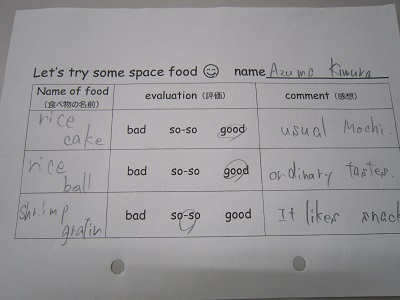 Let's try some space food name Azuma Kimura
Name of food evaluation (評価) comment (感想)
(食べ物の名前)
rice
cake bad so-so good usual Mochi.
rice
ball bad so-so good ordinary tastes.
shrimp
gratin bad so-so good It likes snack